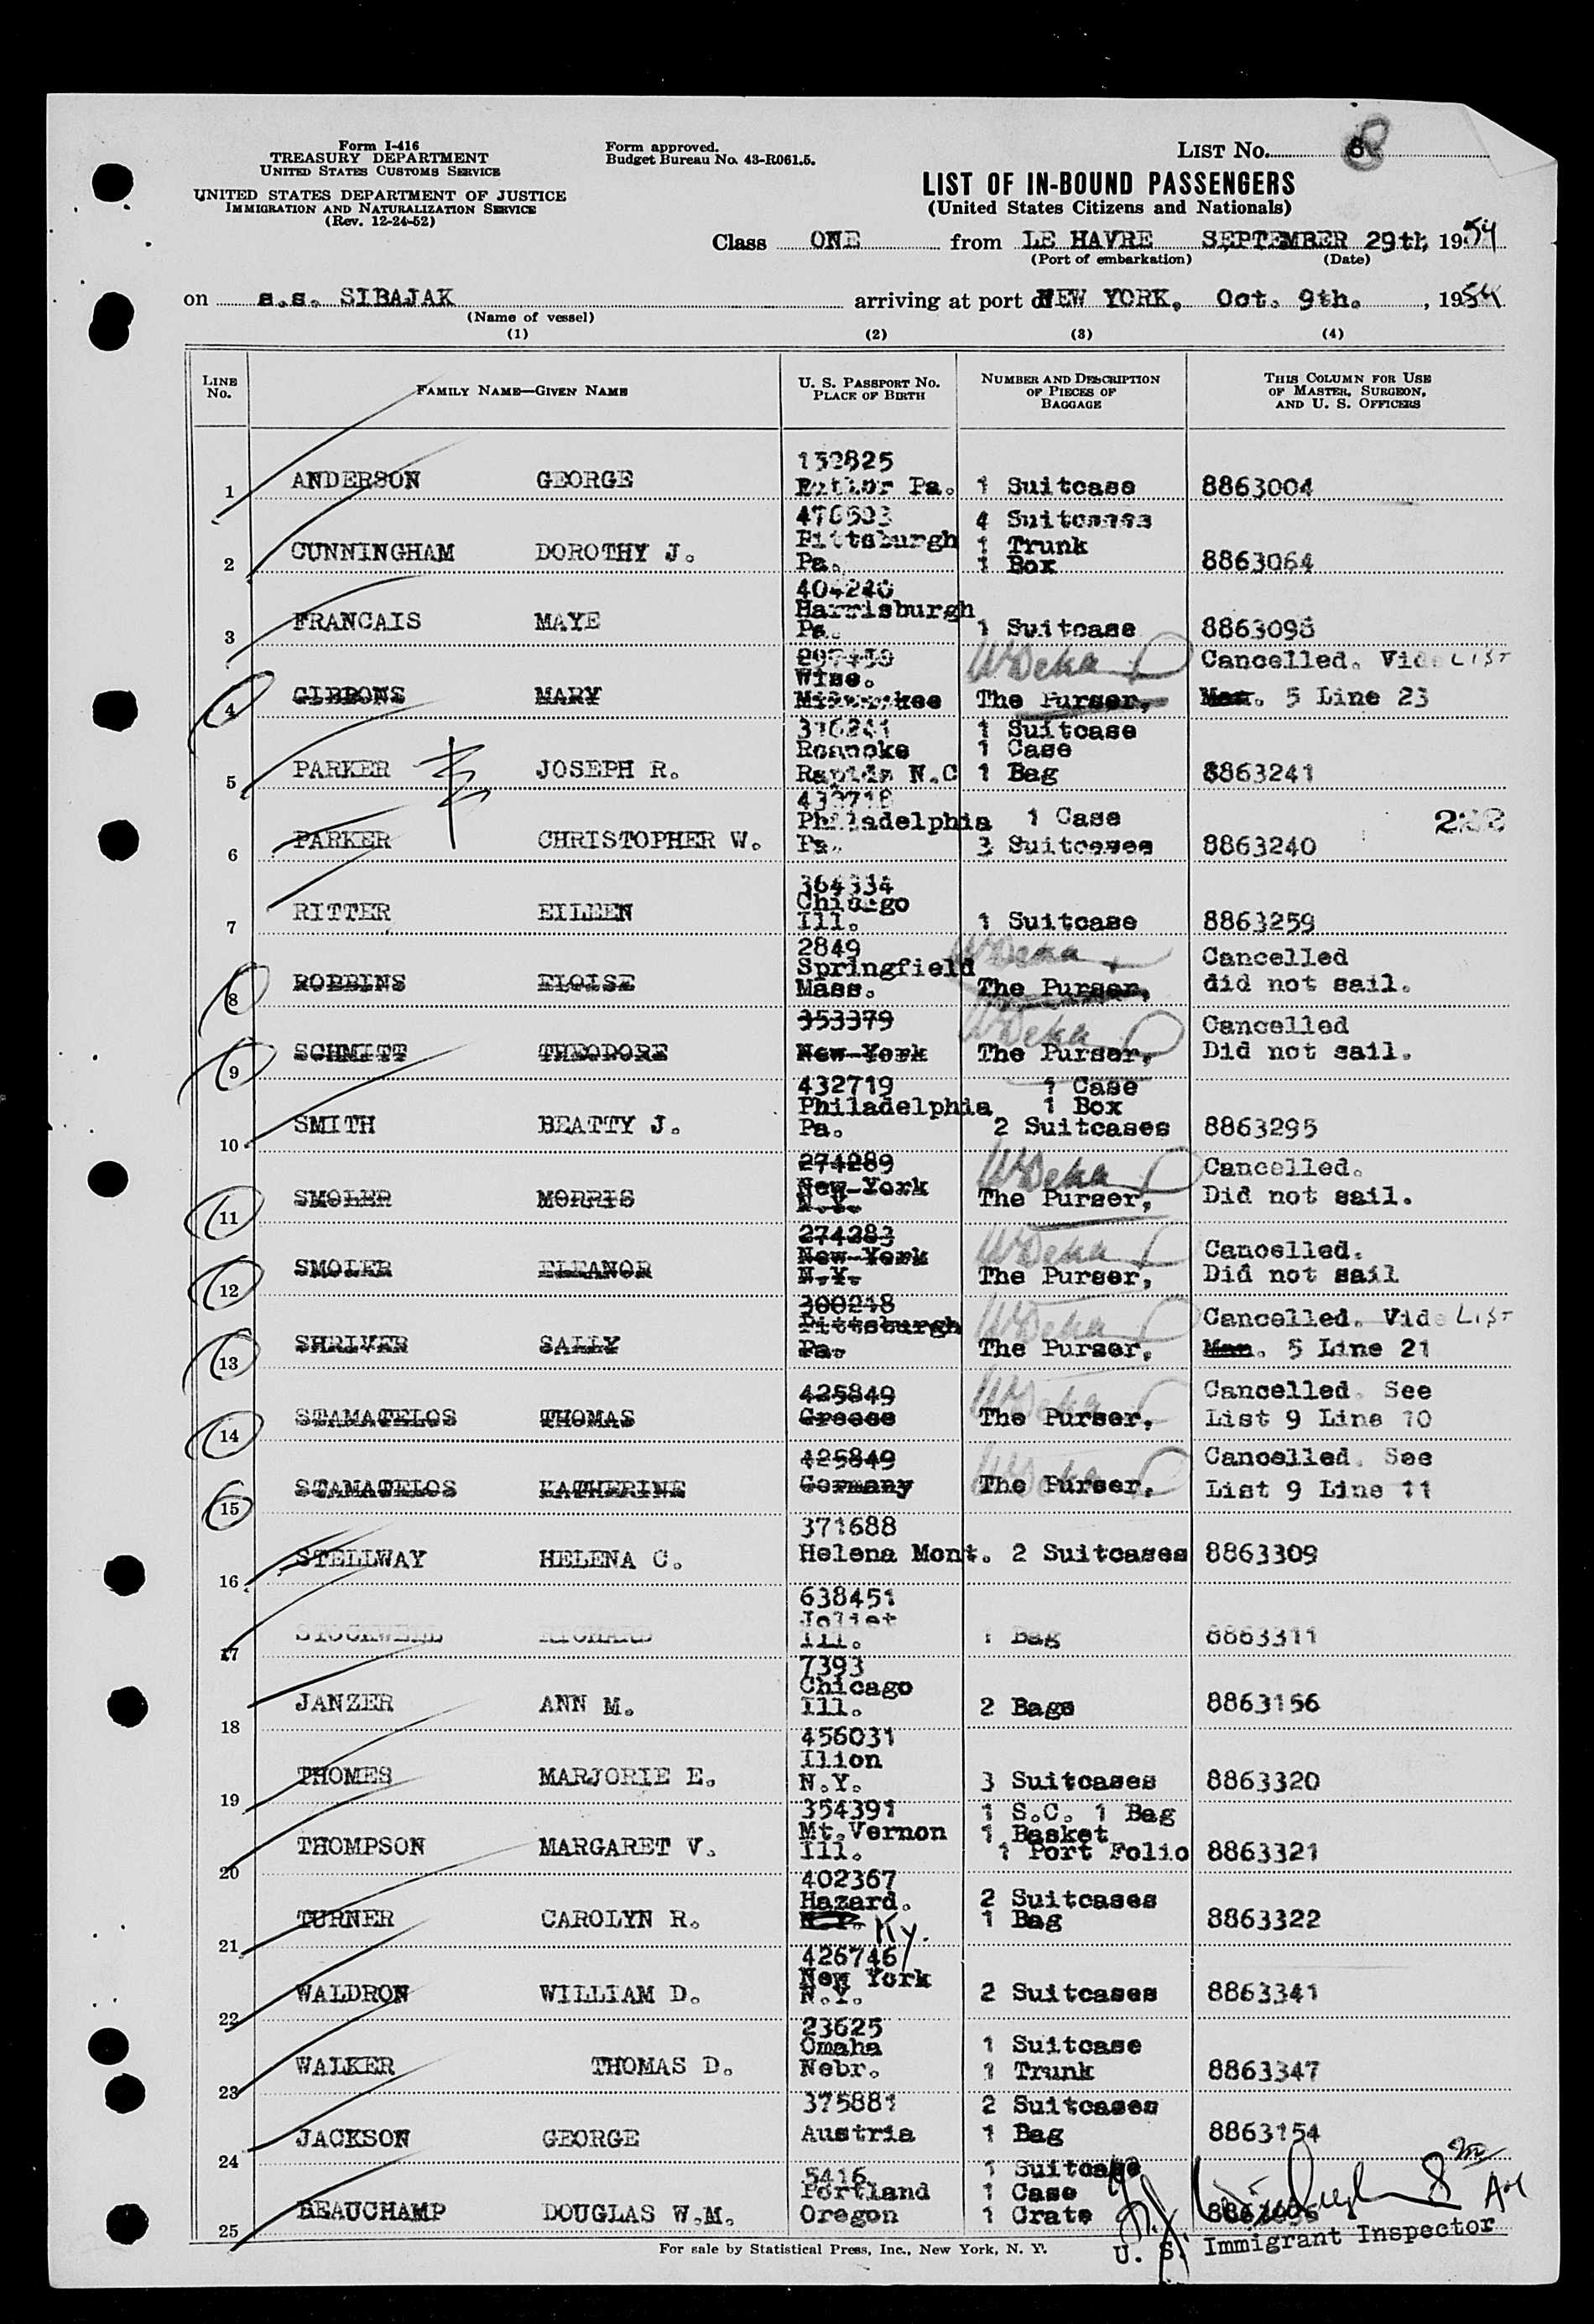 Form I-416
TREASURY DEPARTMENT
UNITED STATES CUSTOMS SERVICE
UNITED STATES DEPARTMENT OF JUSTICE
IMMIGRATION AND NATURALIZATION SERVICE
(Rev. 12-24-52)
Form approved.
Budget Bureau No. 43-R061.5.
LIST No. 8
LIST OF IN-BOUND PASSENGERS
(United States Citizens and Nationals)
Class ONE from LE HAVRE SEPTEMBER 29th, 1954
(Port of embarkation) (Date)
on s.s. SIBAJAK arriving at port of NEW YORK, Oct. 9th. , 1954
(Name of vessel)
(1) (2) (3) (4)
LINE No.
FAMILY NAME—GIVEN NAME
U. S. PASSPORT No.
PLACE OF BIRTH
NUMBER AND DESCRIPTION
OF PIECES OF
BAGGAGE
THIS COLUMN FOR USE
OF MASTER, SURGEON,
AND U. S. OFFICERS
132825
1 ANDERSON GEORGE Pa. 1 Suitcase 8863004
476593 4 Suitcases
Pittsburgh 1 Trunk
2 CUNNINGHAM DOROTHY J. Pa. 1 Box 8863064
404240
Harrisburgh
3 FRANCAIS MAYE Pa. 1 Suitcase 8863098
WDeka Cancelled. Vide LIST
Wisc.
4 GIBBONS MARY Milwaukee The Purser, Man. 5 Line 23
376241 1 Suitcase
Roanoke 1 Case
5 PARKER JOSEPH R. Rapids N.C 1 Bag 8863241
432718
Philadelphia 1 Case 222
6 PARKER CHRISTOPHER W. Pa. 3 Suitcases 8863240
364334
Chicago
7 RITTER EILEEN Ill. 1 Suitcase 8863259
2849 WDeka Cancelled
Springfield
8 ROBBINS ELOISE Mass. The Purser, did not sail.
353379 WDeka Cancelled
9 SCHMITT THEODORE New-York The Purser, Did not sail.
432719 1 Case
Philadelphia 1 Box
10 SMITH BEATTY J. Pa. 2 Suitcases 8863295
274289 WDeka Cancelled.
New-York
11 SMOLER MORRIS N.Y. The Purser, Did not sail.
274283 WDeka Cancelled.
New-York
12 SMOLER ELEANOR N.Y. The Purser, Did not sail
300218 WDeka Cancelled. Vide LIST
Pittsburgh
13 SHRIVER SALLY Pa. The Purser, Man. 5 Line 21
425849 WDeka Cancelled. See
14 STAMATELOS THOMAS Greece The Purser, List 9 Line 10
425849 WDeka Cancelled. See
15 STAMATELOS KATHERINE Germany The Purser, List 9 Line 11
371688
16 STELLWAY HELENA C. Helena Mont. 2 Suitcases 8863309
638451
Joliet
17 STOCKWELL RICHARD Ill. 1 Bag 8863311
7393
Chicago
18 JANZER ANN M. Ill. 2 Bags 8863156
456031
Ilion
19 THOMES MARJORIE E. N.Y. 3 Suitcases 8863320
354391 1 S.C. 1 Bag
Mt.Vernon 1 Basket
20 THOMPSON MARGARET V. Ill. 1 Port Folio 8863321
402367
Hazard. 2 Suitcases
21 TURNER CAROLYN R. Ky. 1 Bag 8863322
426746
New York
22 WALDRON WILLIAM D. N.Y. 2 Suitcases 8863341
23625
Omaha 1 Suitcase
23 WALKER THOMAS D. Nebr. 1 Trunk 8863347
375881 2 Suitcases
24 JACKSON GEORGE Austria 1 Bag 8863154
5416 1 Suitcase
Portland 1 Case
25 BEAUCHAMP DOUGLAS W.M. Oregon 1 Crate
U. S. Immigrant Inspector
For sale by Statistical Press, Inc., New York, N. Y.